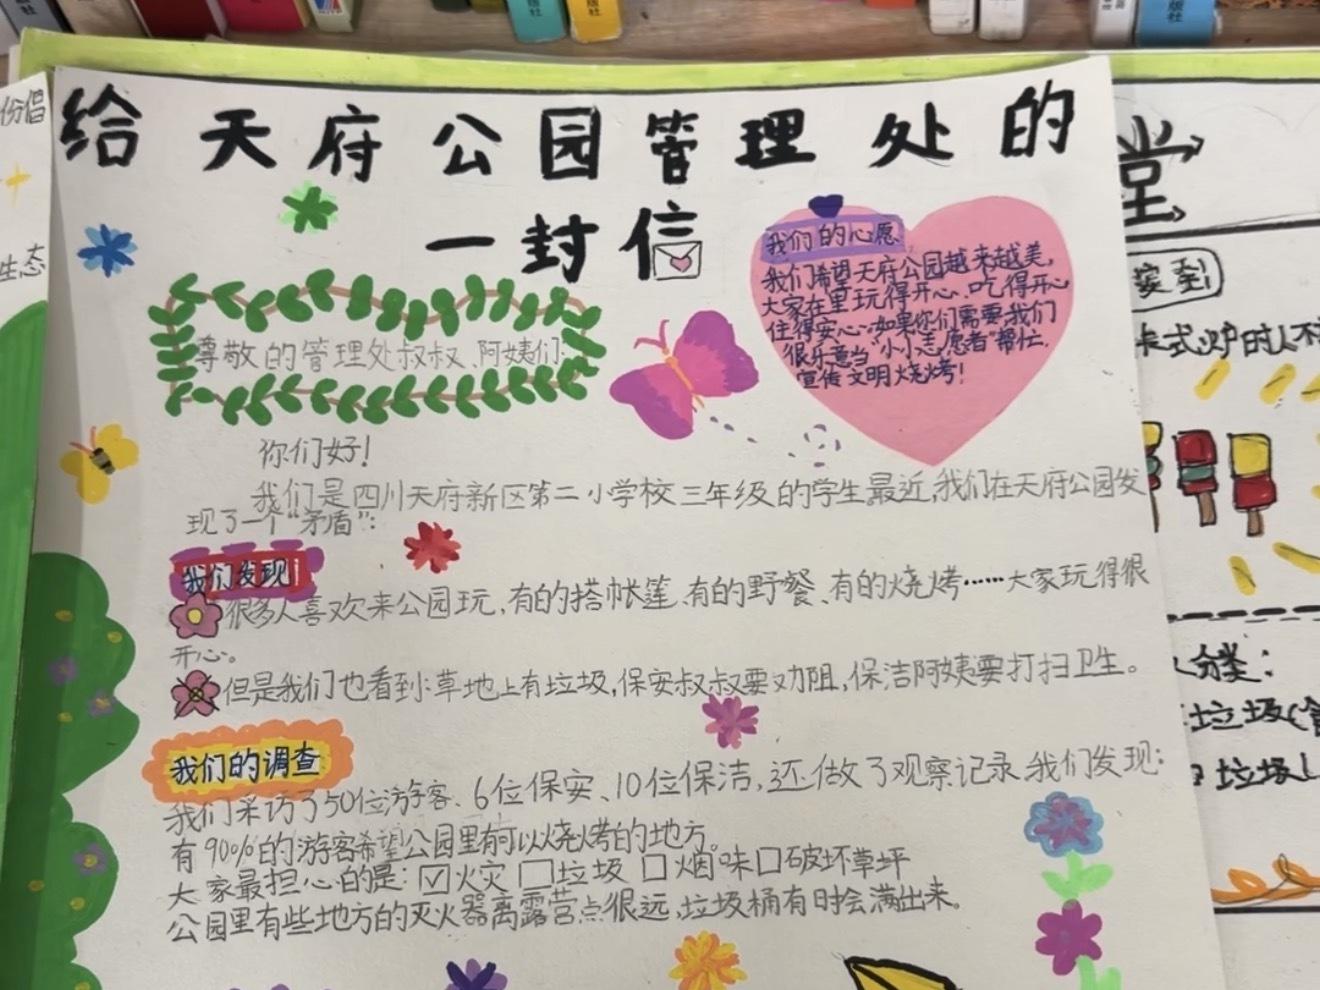 给天府公园管理处的
一封信
我们的心愿
我们希望天府公园越来越美,
大家在里玩得开心、吃得开心
住得安心…如果你们需要我们
很乐意当"小小志愿者"帮忙.
宣传文明烧烤!
尊敬的管理处叔叔、阿姨们:
你们好!
我们是四川天府新区第二小学校三年级的学生最近,我们在天府公园发
现了一个"矛盾":
我们发现
很多人喜欢来公园玩,有的搭帐篷、有的野餐、有的烧烤……大家玩得很
开心。
但是我们也看到:草地上有垃圾,保安叔叔要劝阻,保洁阿姨要打扫卫生。
我们的调查
我们采访了50位游客、6位保安、10位保洁,还做了观察记录.我们发现:
有90%的游客希望公园里有可以烧烤的地方。
大家最担心的是:☑火灾 □垃圾 □烟味□破坏草坪
公园里有些地方的灭火器离露营点很远,垃圾桶有时会满出来。
份倡
生态
堂
家到
卡式炉时人不
分类:
垃圾
垃圾